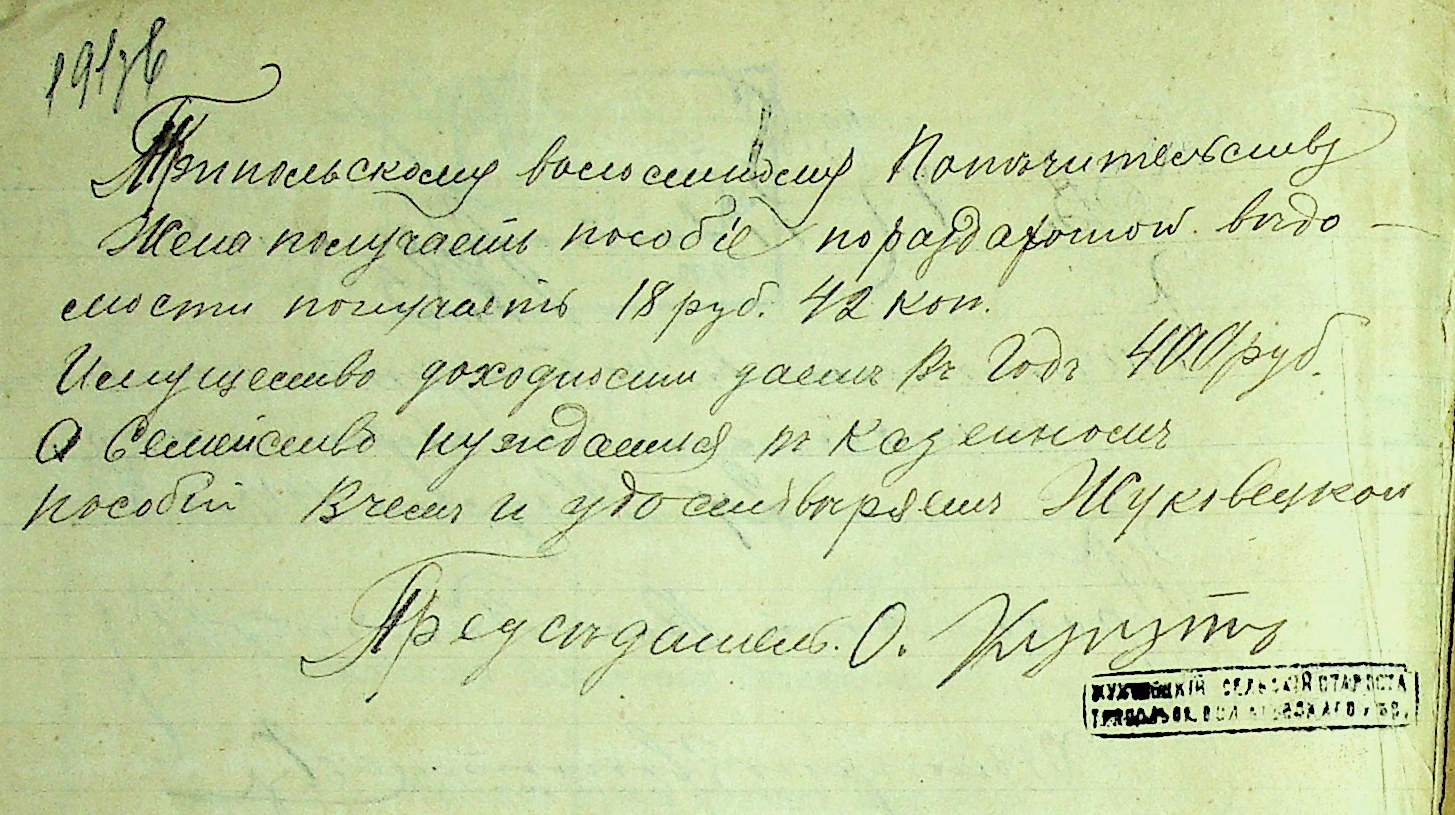 1917 г
Трипольскому волостному Попечительству
Жена получаетъ пособіе по раздаточной вѣдо-
мости получаетъ 18 руб. 42 коп.
Имущество доходности даетъ Въ Годъ 400 руб.
Семейство нуждается въ Казенномъ
пособіи Вчемъ и удостовѣряемъ Жуковецкой
Предсѣдатель. О.
ЖУКОВЕЦКІЙ СЕЛЬСКІЙ СТАРОСТА
ТРИПОЛЬСК. ВОЛ. КІЕВСКАГО УѢЗ.